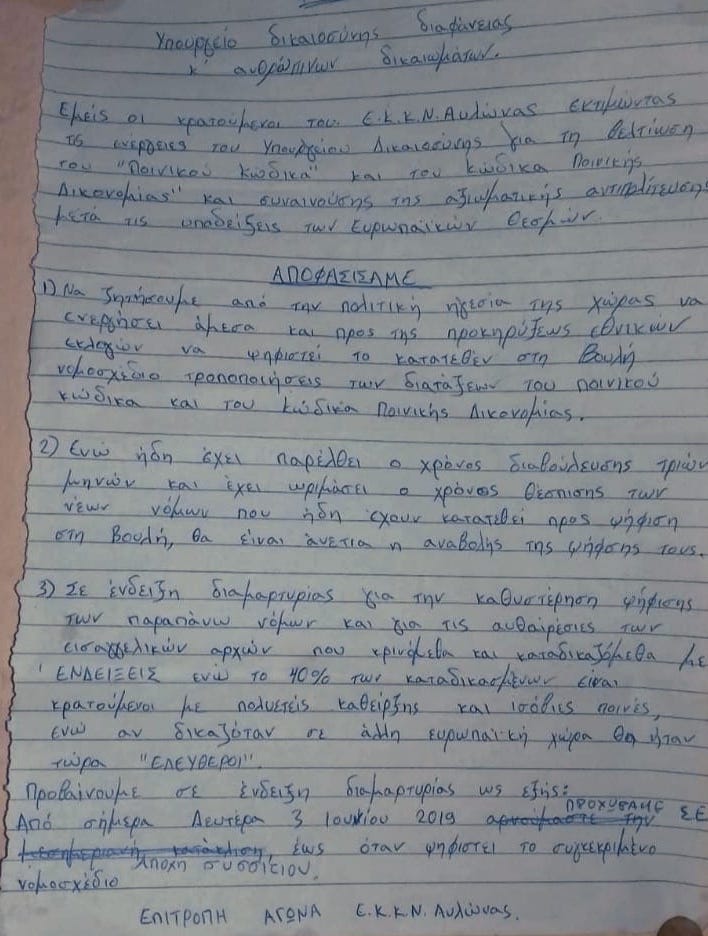 Υπουργείο δικαιοσύνης διαφάνειας
κ' ανθρώπινων δικαιωμάτων.
Εμείς οι κρατούμενοι του Ε.Κ.Κ.Ν. Αυλώνας εκτιμώντας
τις ενέργειες του Υπουργείου Δικαιοσύνης για τη βελτίωση
του "Ποινικού Κώδικα" και του κώδικα Ποινικής
Δικονομίας" και συναινούσης της αξιωματικής αντιπολίτευσης
μετά τις υποδείξεις των Ευρωπαϊκών Θεσμών.
ΑΠΟΦΑΣΙΣΑΜΕ
1) Να ζητήσουμε από την πολιτική ηγεσία της χώρας να
ενεργήσει άμεσα και προς της προκηρύξεως εθνικών
εκλογών να ψηφιστεί το κατατεθέν στη Βουλή
νομοσχέδιο τροποποιήσεις των διατάξεων του ποινικού
κώδικα και του Κώδικα Ποινικής Δικονομίας.
2) Ενώ ήδη έχει παρέλθει ο χρόνος διαβούλευσης τριών
μηνών και έχει ωριμάσει ο χρόνος θέσπισης των
νέων νόμων που ήδη έχουν κατατεθεί προς ψήφιση
στη Βουλή, θα είναι άνετια η αναβολής της ψήφσης τους.
3) Σε ένδειξη διαμαρτυρίας για την καθυστέρηση ψήφισης
των παραπάνω νόμων και για τις αυθαιρέσιες των
εισαγγελικών αρχών που κρινόμεθα και καταδικαζόμεθα με
' ΕΝΔΕΙΞΕΙΣ ενώ το 40% των καταδικασμένων είναι
κρατούμενοι με πολυετείς καθείρξης και ισόβιες ποινές,
ενώ αν δικαζόταν σε άλλη ευρωπαϊκή χώρα θα ήταν
τώρα "ΕΛΕΥΘΕΡΟΙ".
Προβαίνουμε σε ένδειξη διαμαρτυρίας ως εξής:
Από σήμερα Δευτέρα 3 Ιουνίου 2019 αρνούμαστε την ΠΡΟΧΩΡΑΜΕ ΣΕ
μεσημεριανή κατάκλιση, έως όταν ψηφιστεί το συγκεκριμένο
νομοσχέδιο Αποχή συσσιτίου.
ΕΠΙΤΡΟΠΗ ΑΓΩΝΑ Ε.Κ.Κ.Ν. Αυλώνας.